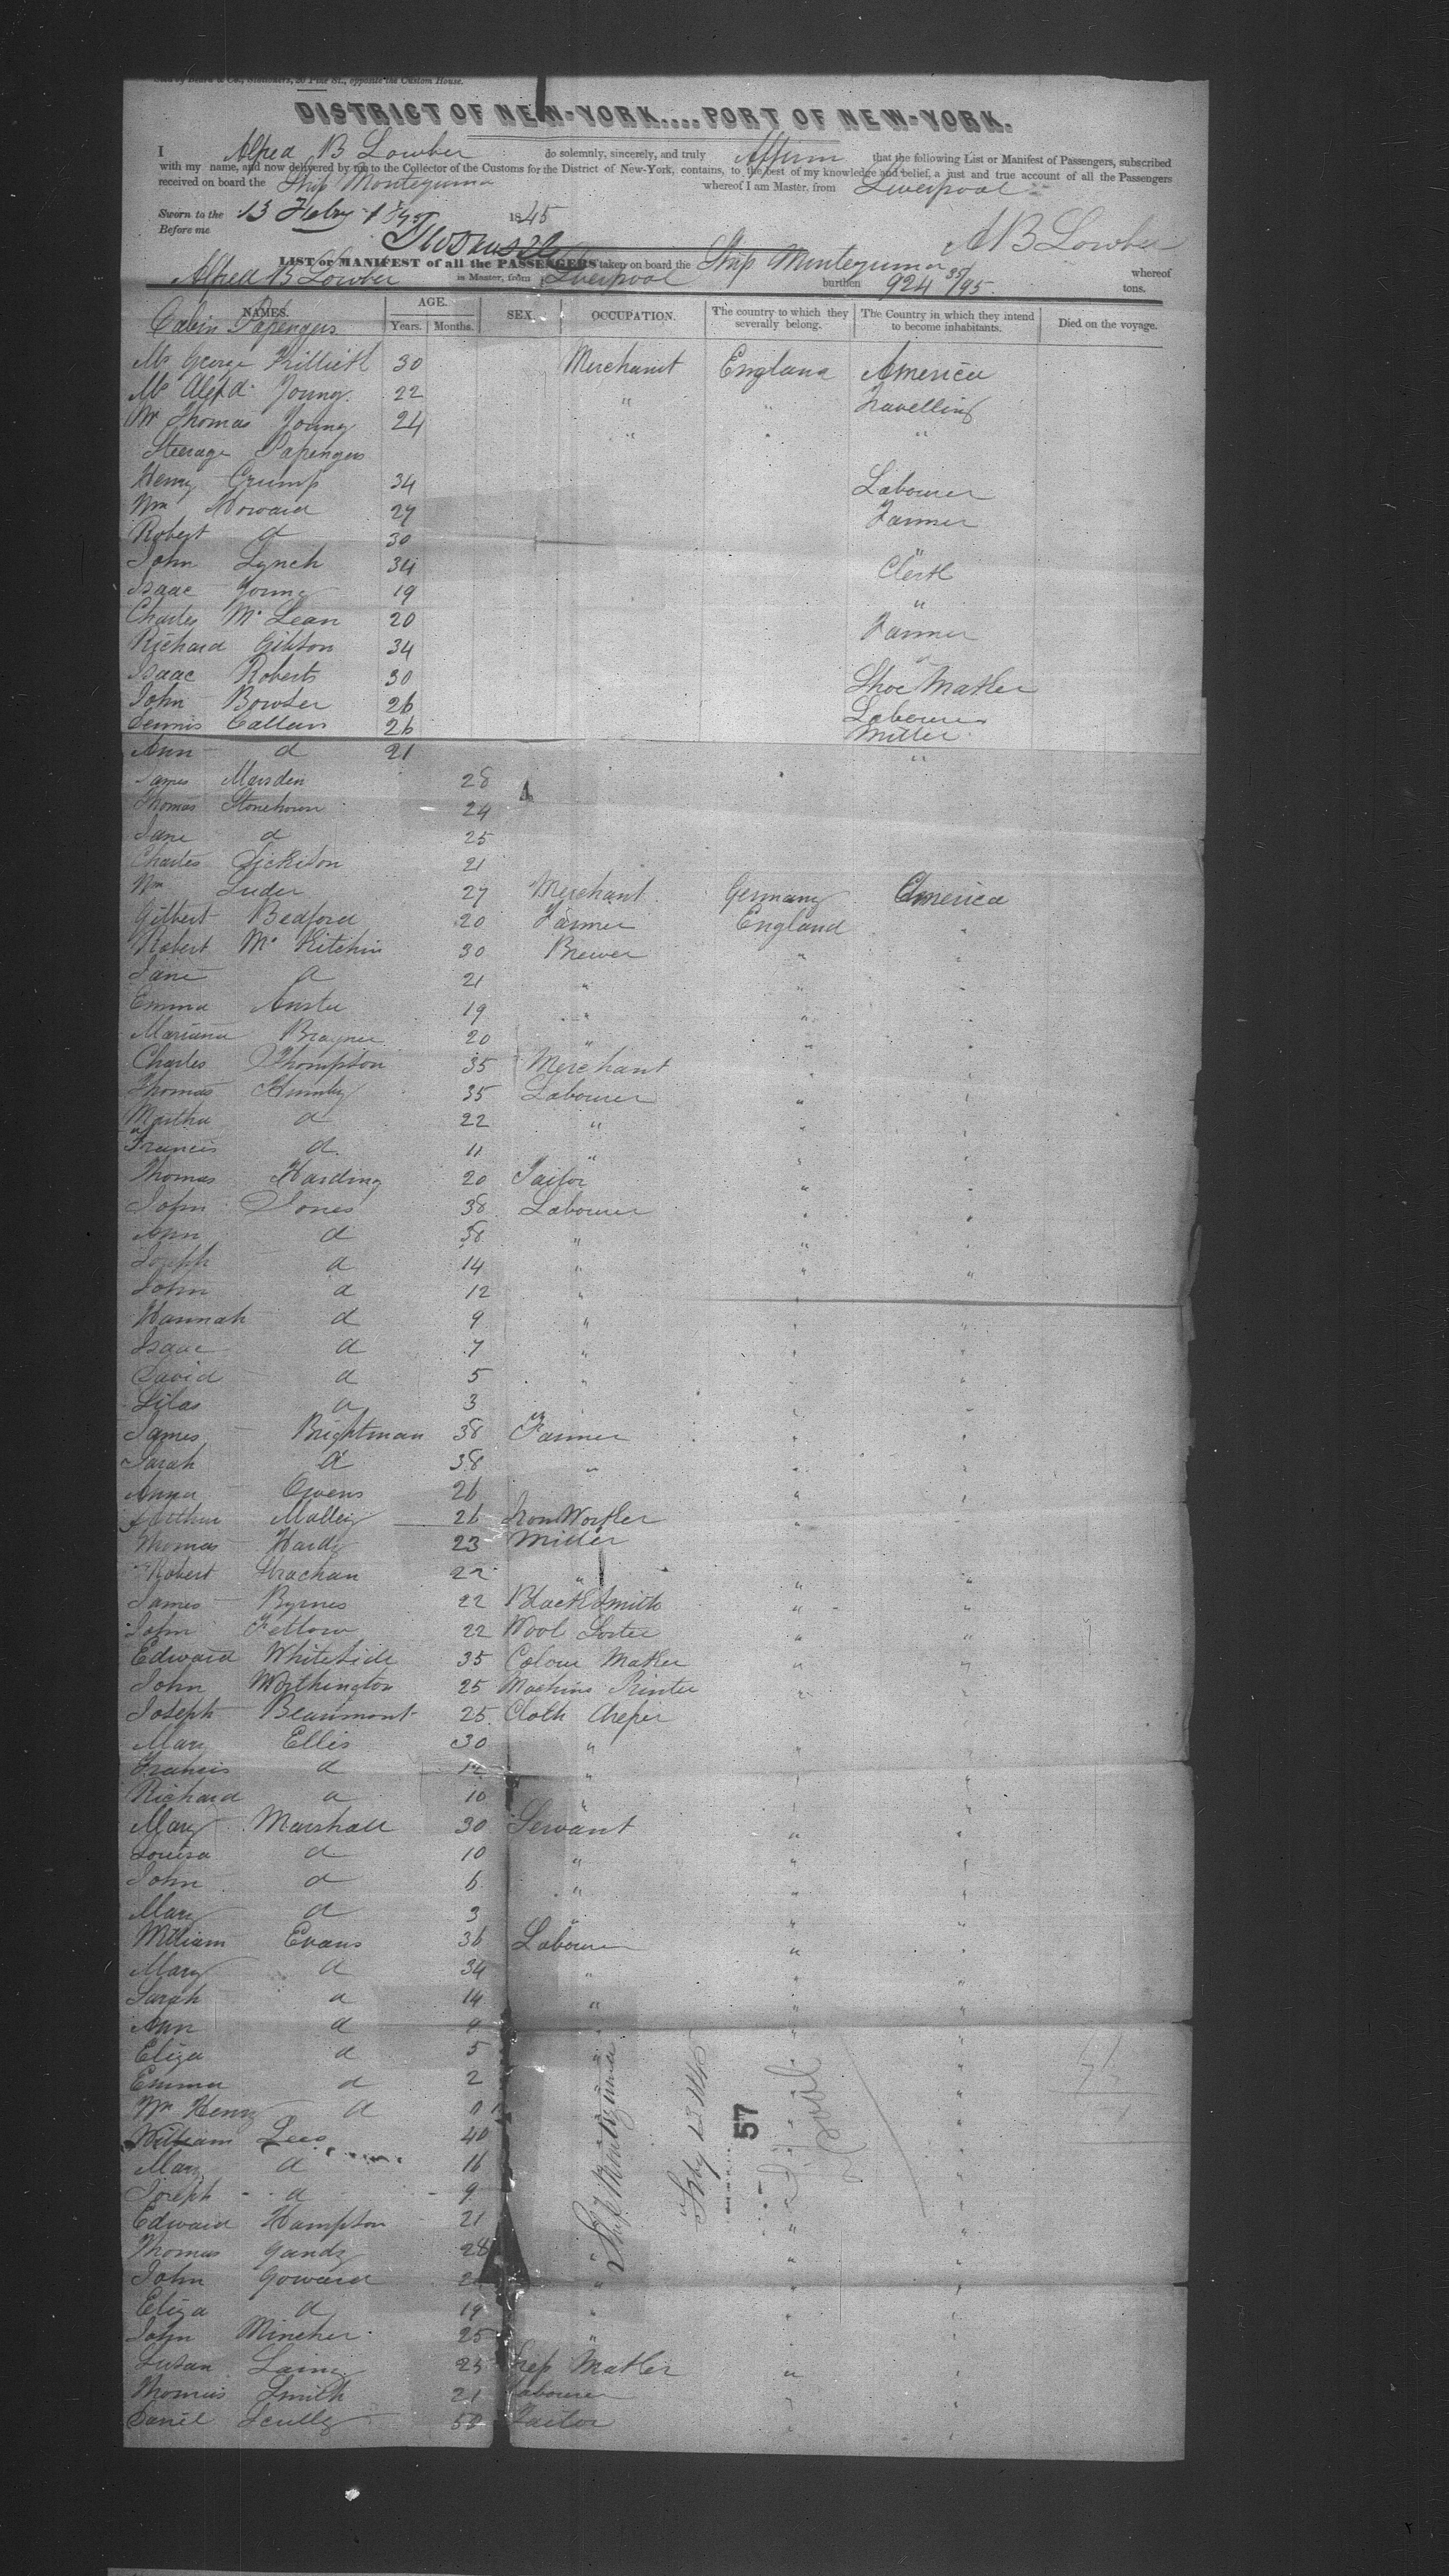 opposite the Custom House.
DISTRICT OF NEW-YORK....PORT OF NEW-YORK.
I Alfred B Lowber do solemnly, sincerely, and truly Affirm that the following List or Manifest of Passengers, subscribed
with my name, and now delivered by me to the Collector of the Customs for the District of New-York, contains, to the best of my knowledge and belief, a just and true account of all the Passengers
received on board the Ship Montezuma whereof I am Master, from Liverpool
Sworn to the 13 Feby 1845
Before me
A B Lowber
LIST or MANIFEST of all the PASSENGERS taken on board the Ship Montezuma whereof
Alfred B Lowber is Master, from Liverpool burthen 924 35/95 tons.
NAMES. AGE. Years. Months. SEX. OCCUPATION. The country to which they severally belong. The Country in which they intend to become inhabitants. Died on the voyage.
Cabin Passengers
Mr George 30 Merchant England America
Mr Alexd Young 22 " " Travelling
Mr Thomas Young 24 " " "
Steerage Passengers
Henry Crump 34 Labourer
Wm Howard 27 Farmer
Robert d 30 "
John Lynch 34 Clerk
Isaac Young 19 "
Charles Mc Lean 20 Farmer
Richard Gibson 34
Isaac Roberts 30 Shoe Maker
John Bowser 26 Labourer
Dennis Callan 26 Miller
Ann d 21 "
James Marsden 28
Thomas 24
Jane d 25
Charles Dickison 21
Wm Luder 27 Merchant Germany America
Gilbert Bedford 20 Farmer England "
Robert Mc Kitchin 30 Brewer " "
Jane d 21 " " "
Emma 19 " " "
Mariana 20 " " "
Charles Thompson 35 Merchant " "
Thomas 35 Labourer " "
Martha d 22 " " "
Francis d 11 " " "
Thomas Harding 20 Tailor " "
John Jones 38 Labourer " "
Ann d 38 " " "
Joseph d 14 " " "
John d 12 " " "
Hannah d 9 " " "
Isaac d 7 " " "
David d 5 " " "
Silas d 3 " " "
James Brightman 38 Farmer " "
Sarah d 38 " " "
Anna Owens 26 " "
Arthur Malley 26 Iron Worker " "
Thomas Hardy 23 Miller
Robert Strachan 22 " " "
James Byrnes 22 Black Smith " "
John Fellow 22 Wool Sorter " "
Edward Whiteside 35 Colour Maker " "
John Worthington 25 Machine Printer " "
Joseph Beaumont 25 Cloth "
Mary Ellis 30 " " "
Francis d 12 " " "
Richard d 10 " " "
Mary Marshall 30 Servant " "
Louisa d 10 " " "
John d 6 " " "
Mary d 3 " " "
William Evans 36 Labourer " "
Mary d 34 " " "
Sarah d 14 " " "
Ann d 9 " "
Eliza d 5 "
Emma d 2 "
Wm Henry d "
William Lees 40 "
Mary d 16 "
Joseph d 9 "
Edward Hampton 21 " "
Thomas Gandy 28 " " "
John Goward " " "
Eliza d 19 " " "
John Mincher 25 " " "
Susan Laing 25 Maker " "
Thomas Smith 21 Labourer " "
Daniel Scully 50 Tailor " "
Ship Montezuma
57